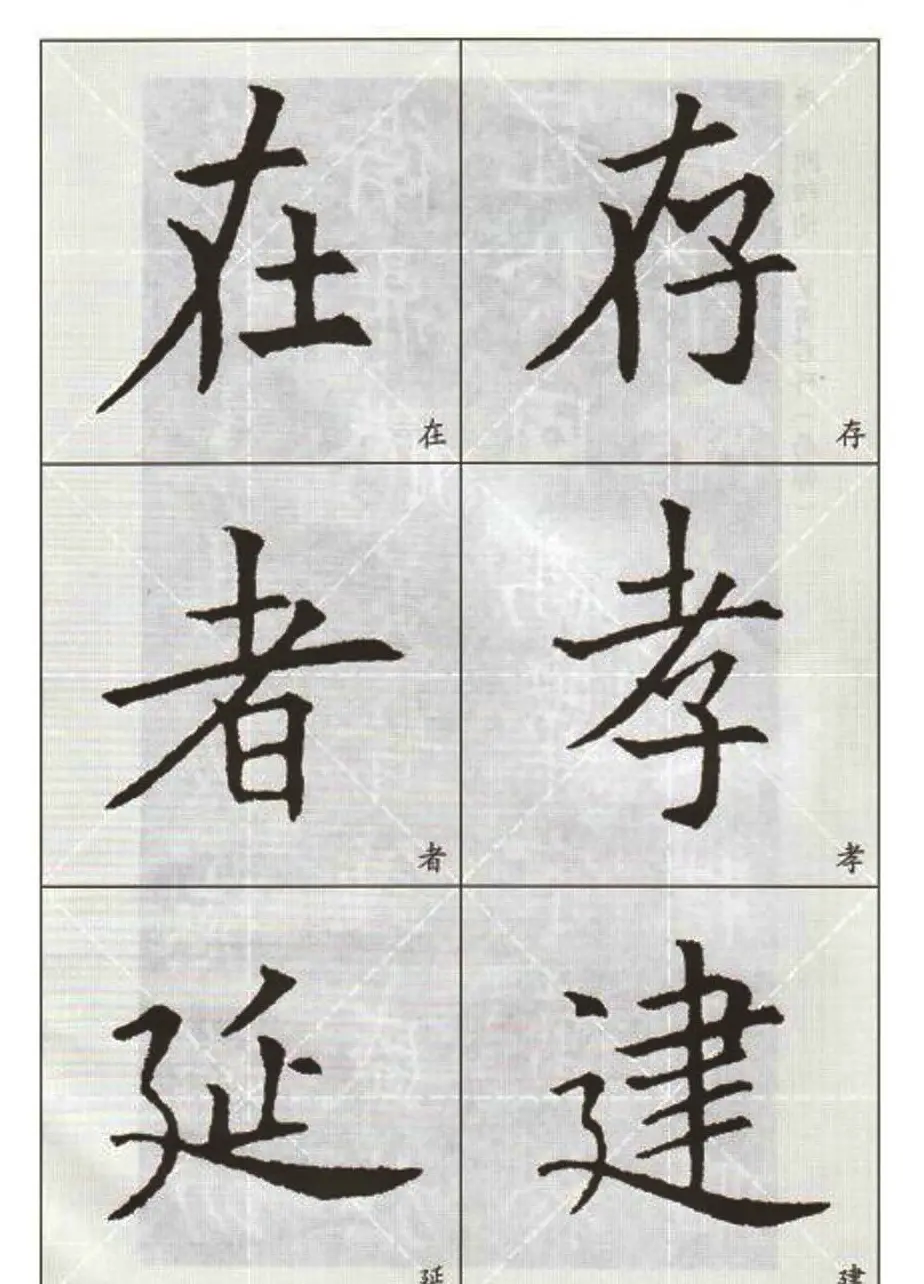 在 存
在 存
者 孝
者 孝
延 建
延 建